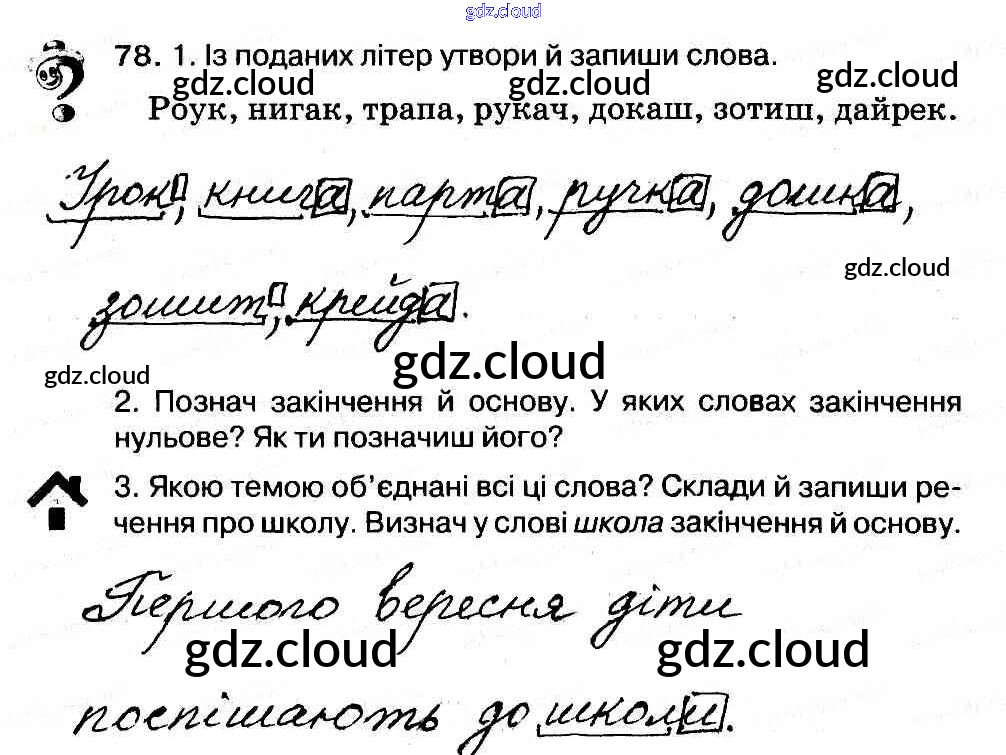 gdz.cloud
78. 1. Із поданих літер утвори й запиши слова.
gdz.cloud gdz.cloud gdz.cloud
Роук, нигак, трапа, рукач, докаш, зотиш, дайрек.
Урок, книга, парта, ручка, дошка,
gdz.cloud
зошит, крейда.
gdz.cloud
gdz.cloud
2. Познач закінчення й основу. У яких словах закінчення
нульове? Як ти позначиш його?
3. Якою темою об’єднані всі ці слова? Склади й запиши ре-
чення про школу. Визнач у слові школа закінчення й основу.
Першого вересня діти
gdz.cloud gdz.cloud
поспішають до школи.